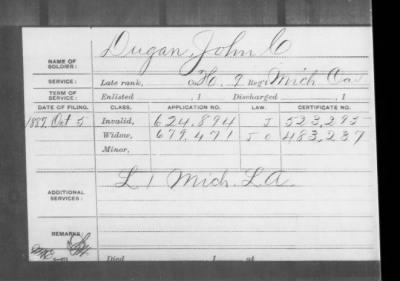 Dugan, John C
NAME OF SOLDIER:
SERVICE: Late rank, Co. H. 9 Reg't Mich Cav
TERM OF SERVICE: Enlisted , 1 Discharged , 1
DATE OF FILING. CLASS. APPLICATION NO. LAW. CERTIFICATE NO.
1887, Oct 5 Invalid, 624,894 J 523,295
Widow, 679,471 483,237
Minor,
L 1 Mich. L.A.
ADDITIONAL SERVICES:
REMARKS:
Died , 1 , at